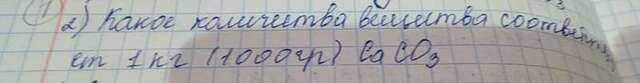 2) Какое количества вещества соответству
ет 1 кг (1000гр) CaCO3